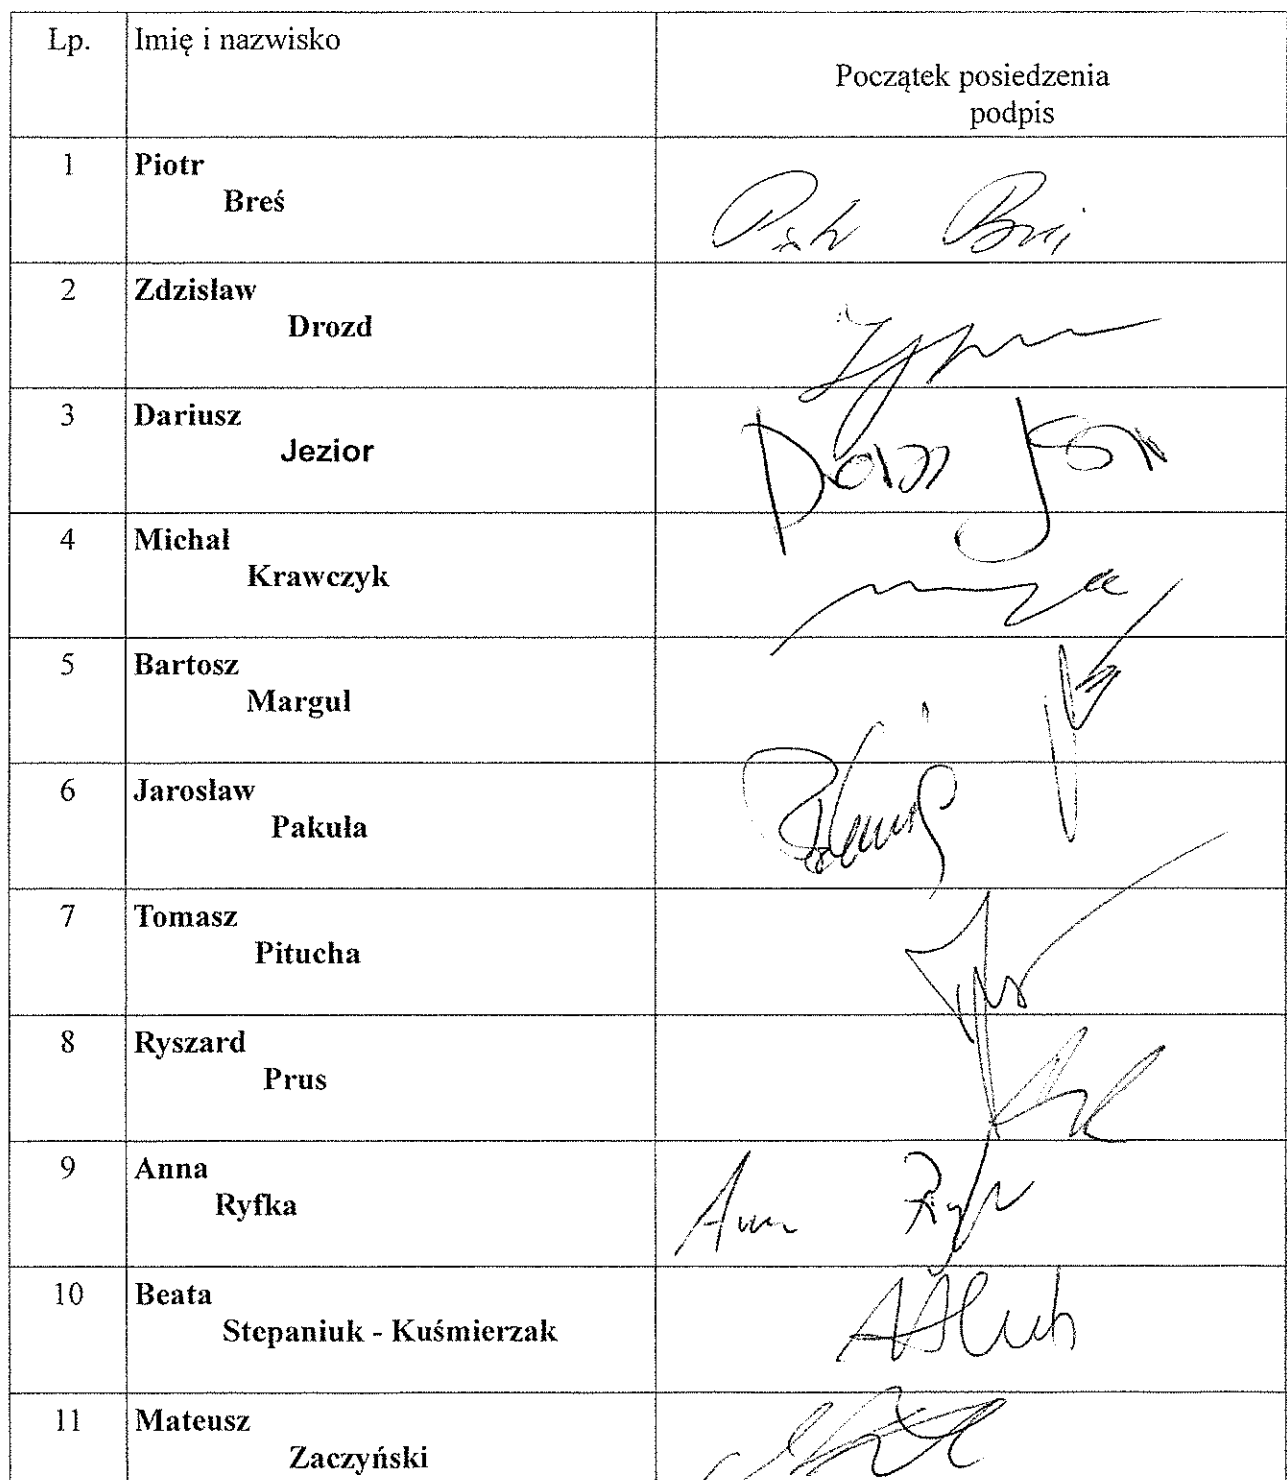 Lp. Imię i nazwisko
Początek posiedzenia
podpis
1 Piotr
Breś
Piotr Breś
2 Zdzisław
Drozd
3 Dariusz
Jezior
4 Michał
Krawczyk
5 Bartosz
Margul
6 Jarosław
Pakuła
7 Tomasz
Pitucha
8 Ryszard
Prus
9 Anna
Ryfka
Anna Ryfka
10 Beata
Stepaniuk - Kuśmierzak
11 Mateusz
Zaczyński